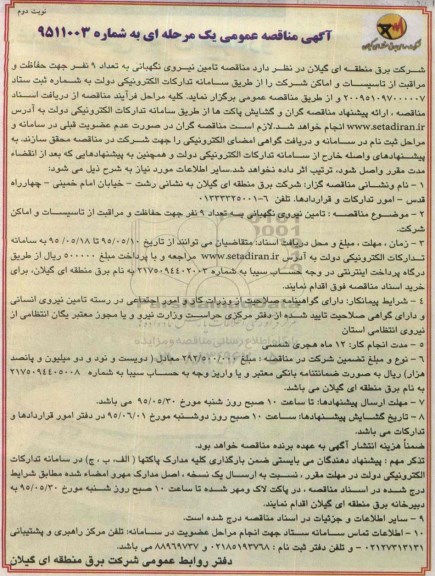 نوبت دوم
آگهی مناقصه عمومی یک مرحله ای به شماره ۹۵۱۱۰۰۳
شرکت برق منطقه ای گیلان در نظر دارد مناقصه تامین نیروی نگهبانی به تعداد ۹ نفر جهت حفاظت و
مراقبت از تاسیسات و اماکن شرکت را از طریق سامانه تدارکات الکترونیکی دولت به شماره ثبت ستاد
۲۰۰۹۵۱۰۹۷۰۰۰۰۰۷ و از طریق مناقصه عمومی برگزار نماید. کلیه مراحل فرآیند مناقصه از دریافت اسناد
مناقصه ، ارائه پیشنهاد مناقصه گران و گشایش پاکت ها از طریق سامانه تدارکات الکترونیکی دولت به آدرس
www.setadiran.ir انجام خواهد شد.لازم است مناقصه گران در صورت عدم عضویت قبلی در سامانه و
مراحل ثبت نام در سامانه و دریافت گواهی امضای الکترونیکی را جهت شرکت در مناقصه محقق سازند. به
پیشنهادهای واصله خارج از سامانه تدارکات الکترونیکی دولت و همچنین به پیشنهادهایی که بعد از انقضاء
مدت مقرر واصل شود، ترتیب اثر داده نخواهد شد.سایر اطلاعات مورد نیاز به شرح ذیل می شود:
۱ - نام ونشانی مناقصه گزار: شرکت برق منطقه ای گیلان به نشانی رشت - خیابان امام خمینی - چهارراه
قدس - امور تدارکات و قراردادها. تلفن ۶-۰۱۳۳۳۳۲۵۰۰۱
۲ - موضوع مناقصه : تامین نیروی نگهبانی به تعداد ۹ نفر جهت حفاظت و مراقبت از تاسیسات و اماکن
شرکت.
۳ - زمان ، مهلت ، مبلغ و محل دریافت اسناد: متقاضیان می توانند از تاریخ ۹۵/۰۵/۱۰ تا ۹۵/۰۵/۱۸ به سامانه
تدارکات الکترونیکی دولت به آدرس www.setadiran.ir مراجعه و با پرداخت مبلغ ۵۰۰۰۰۰ ریال از طریق
درگاه پرداخت اینترنتی در وجه حساب سیبا به شماره ۲۱۷۵۰۹۴۴۰۲۰۰۳ به نام برق منطقه ای گیلان، برای
خرید اسناد مناقصه فوق اقدام نمایند.
۴ - شرایط پیمانکار: دارای گواهینامه صلاحیت از وزارت کار و امور اجتماعی در رسته تامین نیروی انسانی
و دارای گواهی صلاحیت تایید شده از دفتر مرکزی حراست وزارت نیرو و یا مجوز معتبر یگان انتظامی از
نیروی انتظامی استان
۵ - مدت انجام کار: ۱۲ ماه هجری شمسی
۶ - نوع و مبلغ تضمین شرکت در مناقصه : مبلغ ۲۹۲/۵۰۰/۰۰۰ معادل ( دویست و نود و دو میلیون و پانصد
هزار) ریال به صورت ضمانتنامه بانکی معتبر و یا واریز وجه به حساب سیبا به شماره ۲۱۷۵۰۹۴۴۰۵۰۰۸
به نام برق منطقه ای گیلان می باشد.
۷ - مهلت ارسال پیشنهادها: تا ساعت ۱۰ صبح روز شنبه مورخ ۹۵/۰۵/۳۰ می باشد.
۸ - تاریخ گشایش پیشنهادها: ساعت ۱۰ صبح روز دوشنبه مورخ ۹۵/۰۶/۰۱ در دفتر امور قراردادها و
تدارکات می باشد.
ضمناً هزینه انتشار آگهی به عهده برنده مناقصه خواهد بود.
تذکر مهم : پیشنهاد دهندگان می بایستی ضمن بارگذاری کلیه مدارک پاکتها ( الف، ب ، ج) در سامانه تدارکات
الکترونیکی دولت در مهلت مقرر ، نسبت به ارسال یک نسخه ، اصل مدارک مهرو امضاء شده مطابق شرایط
درج شده در اسناد مناقصه ، در پاکت لاک ومهر شده تا ساعت ۱۰ صبح روز شنبه مورخ ۹۵/۰۵/۳۰ به
دبیرخانه برق منطقه ای گیلان اقدام نمایند.
۹ - سایر اطلاعات و جزئیات در اسناد مناقصه درج شده است.
۱۰ - اطلاعات تماس سامانه ستاد جهت انجام مراحل عضویت در سامانه: تلفن مرکز راهبری و پشتیبانی
۰۲۱۲۷۳۱۳۱۳۱ - و تلفن دفتر ثبت نام : ۰۲۱۸۵۱۹۳۷۶۸ و ۸۸۹۶۹۷۳۷ می باشد.
دفتر روابط عمومی شرکت برق منطقه ای گیلان